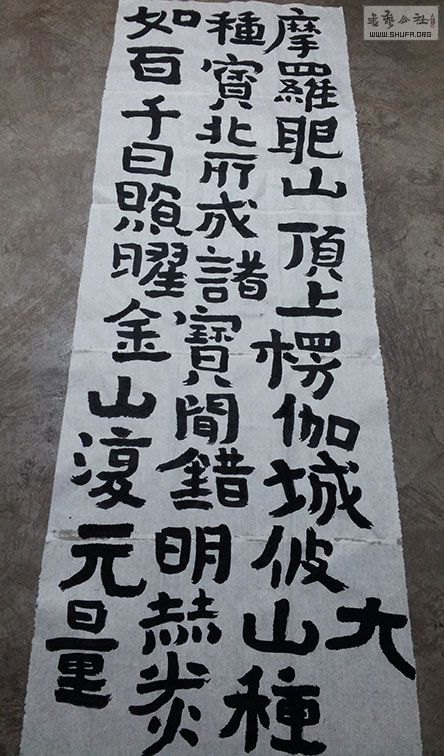 書藝公社
WWW.SHUFA.ORG
摩羅耶山頂上楞伽城彼山種
大
種寶北所成諸寶間錯明赫炎
如百千日照曜金山復元量